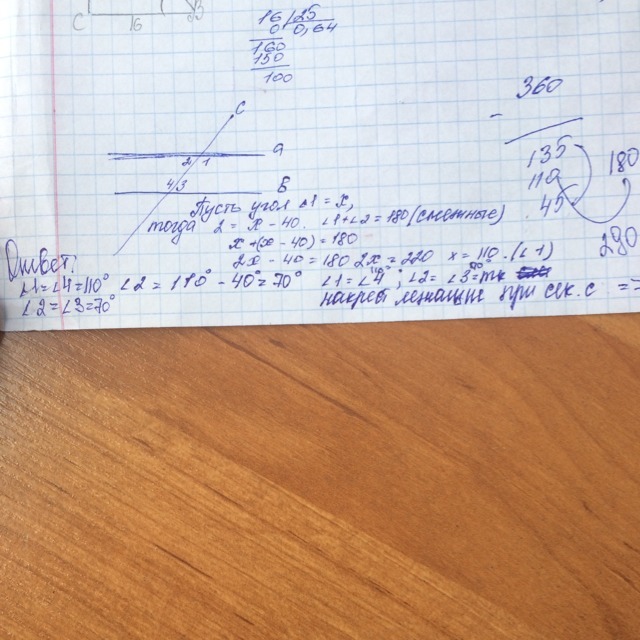 C 16 B
16 25
0 0,64
160
150
100
360
-
135
110
45
180
290
C
a
2 1
4 3
B
Пусть угол ∠1 = x,
тогда 2 = x - 40. ∠1 + ∠2 = 180 (смежные)
x + (x - 40) = 180
2x - 40 = 180 2x = 220 x = 110. (∠1)
Ответ:
∠1 = ∠4 = 110° ∠2 = 110° - 40° = 70° ∠1 = ∠4 ; ∠2 = ∠3 = тк
∠2 = ∠3 = 70° накрест лежащие при сек. с =>